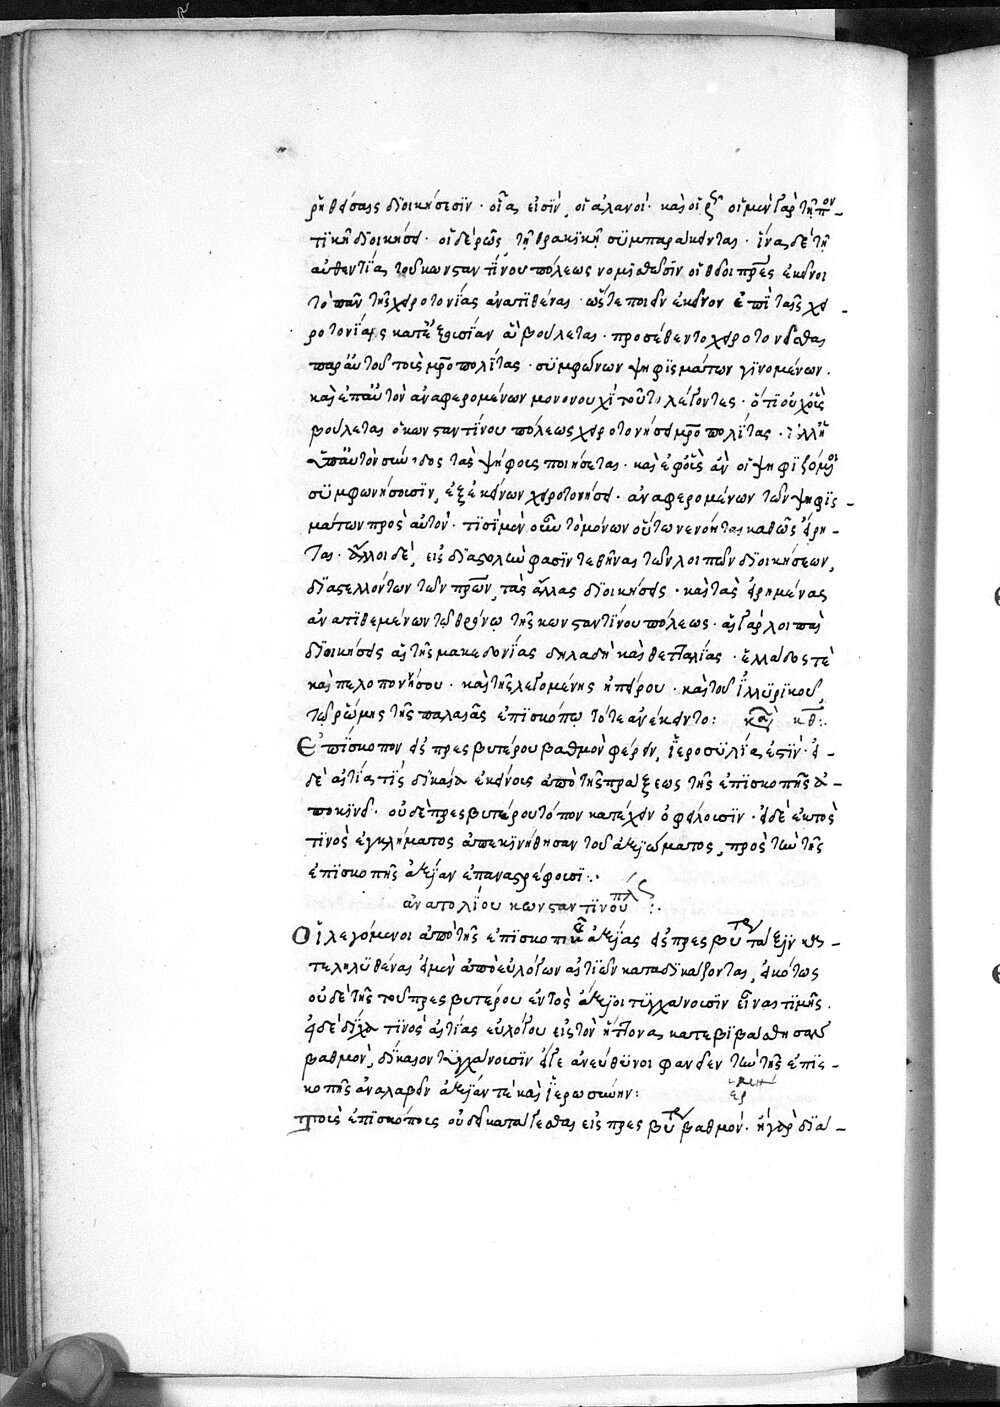 ρηθείσαις διοικήσεσιν· οἷα εἰσὶν, οἱ ἀλανοὶ· καὶ οἱ ῥῶς· οἱ μὲν γὰρ τῇ πον-
τικῇ διοικήσει· οἱ δὲ ῥῶς τῇ θρακικῇ συμπαράκεινται· ἵνα δὲ τῇ
αὐθεντίᾳ τοῦ κωνσταντίνου πόλεως νομισθῶσιν οἱ θεῖοι πρες ἐκεῖνοι
τὸ πᾶν τῆς χειροτονίας ἀνατιθέναι· ὥστε ποιεῖν ἐκεῖνον ἐπὶ ταῖς χει-
ροτονίαις κατ' ἐξουσίαν ἃ βούλεται· προσέθεντο χειροτονεῖσθαι
παρ' αὐτοῦ τοὺς μροπολίτας· συμφώνων ψηφισμάτων γινομένων·
καὶ ἐπ' αὐτὸν ἀναφερομένων μονονουχὶ τοῦτο λέγοντες· ὅτι οὐχ οὓς
βούλεται ὁ κωνσταντίνου πόλεως χειροτονήσει μροπολίτας· ἀλλ' ἡ
ὑπ' αὐτὸν σύνοδος τὰς ψήφους ποιήσεται· καὶ ἐφ' οἷς ἂν οἱ ψηφιζόμενοι
συμφωνήσουσιν, ἐξ ἐκείνων χειροτονήσει· ἀναφερομένων τῶν ψηφισ-
μάτων πρὸς αὐτὸν· τισὶ μὲν οὖν τὸ μόνων οὕτω νενόηται καθὼς εἴρη-
ται· ἄλλοι δὲ, εἰς διαστολὴν φασὶν τεθῆναι τῶν λοιπῶν διοικήσεων,
διαστελλόντων τῶν πρων, τὰς ἄλλας διοικήσεις· καὶ τὰς εἰρημένας
ἀνατιθεμένων τῷ θρόνῳ τῆς κωνσταντίνου πόλεως· αἱ γὰρ λοιπαὶ
διοικήσεις αἱ τῆς μακεδονίας δηλαδὴ καὶ θετταλίας· ἑλλάδος τὲ
καὶ πελοπονήσου· καὶ τῆς λεγομένης ἠπείρου· καὶ τοῦ ἰλλυρικοῦ,
τῷ ῥώμης τῆς παλαιᾶς ἐπισκόπῳ τότε ἀνέκειντο: κα κθ:
Ἐπίσκοπον εἰς πρεσβυτέρου βαθμὸν φέρειν, ἱεροσυλία ἐστὶν· εἰ
δὲ αἰτία τίς δικαία ἐκείνους ἀπὸ τῆς πράξεως τῆς ἐπισκοπῆς ἀ-
ποκινεῖ· οὐδὲ πρεσβυτέρου τόπον κατέχειν ὀφείλουσιν· εἰ δὲ ἐκτὸς
τινὸς ἐγκλήματος ἀπεκινήθησαν τοῦ ἀξιώματος, πρὸς τὴν τῆς
ἐπισκοπῆς ἀξίαν ἐπαναστρέψουσι:·
ἀνατολίου κωνσταντινουπλς:·
Οἱ λεγόμενοι ἀπὸ τῆς ἐπισκοπικῆς ἀξίας εἰς πρεσβυτερ τάξιν κα-
τεληλυθέναι εἰ μὲν ἀπὸ εὐλόγων αἰτιῶν καταδικάζονται, εἰκότως
οὐδὲ τῆς τοῦ πρεσβυτέρου ἐντὸς ἄξιοι τυγχάνουσιν εἶναι τιμῆς·
εἰ δὲ δίχα τινὸς αἰτίας εὐλόγου εἰς τὸν ἥττονα κατεβιβάσθησαν
βαθμὸν, δίκαιον τυγχάνουσιν εἴγε ἀνεύθυνοι φανεῖεν τὴν τῆς ἐπισ-
κοπῆς ἀναλαβεῖν ἀξίαν τὲ καὶ ἱερωσύνην:
Τοὺς ἐπισκόπους οὐ δεῖ κατάγεσθαι εἰς πρεσβυτερ βαθμόν· ἢ γὰρ διὰ-